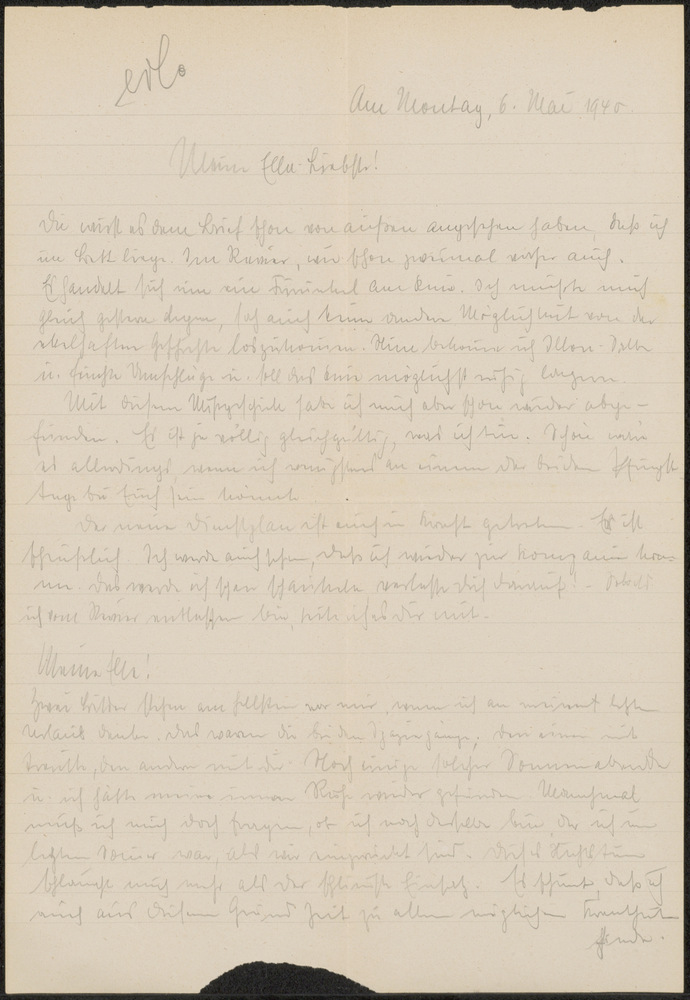 erl.
Am Montag, 6. Mai 1940.
Meine Ella-Liebste!
Du wirst es dem Brief schon von außen angesehen haben, daß ich
im Bett liege. Im Revier, wie schon zweimal vorher auch.
Es handelt sich um ein Furunkel am Knie. Ich mußte mich
gleich gestern legen, sah auch keine andere Möglichkeit von der
ekelhaften Geschichte loszukommen. Nun bekomme ich Salbe
u. feuchte Umschläge u. soll das Knie möglichst ruhig lagern.
Mit diesem Mißgeschick habe ich mich aber schon wieder abge-
funden. Es ist ja völlig gleichgültig, was ich tue. Schön wäre
es allerdings, wenn ich wenigstens an einem der beiden Pfingst-
tage bei Euch sein könnte.
Der neue Dienstplan ist auch in Kraft getreten. Er ist
scheußlich. Ich werde auch sehen, daß ich wieder zur Kompanie kom-
me. Das werde ich schon schaukeln, verlasse Dich darauf! - Sobald
ich vom Revier entlassen bin, teile ich es Dir mit.
Meine Ella!
Zwei Bilder stehen am hellsten vor mir, wenn ich an meinen letzten
Urlaub denke. Das waren die beiden Spaziergänge, den einen mit
den andern mit Dir. Noch einige solcher Sonnenabende
u. ich hätte meine innere Ruhe wieder gefunden. Manchmal
muß ich mich doch fragen, ob ich noch derselbe bin, der ich im
letzten war, als wir eingerückt sind. Dieses Nichtstun
schlaucht mich mehr als der schlimmste Einsatz. Es scheint, daß ich
auch aus diesem Grund Zeit zu allen möglichen Krankheiten
fände.